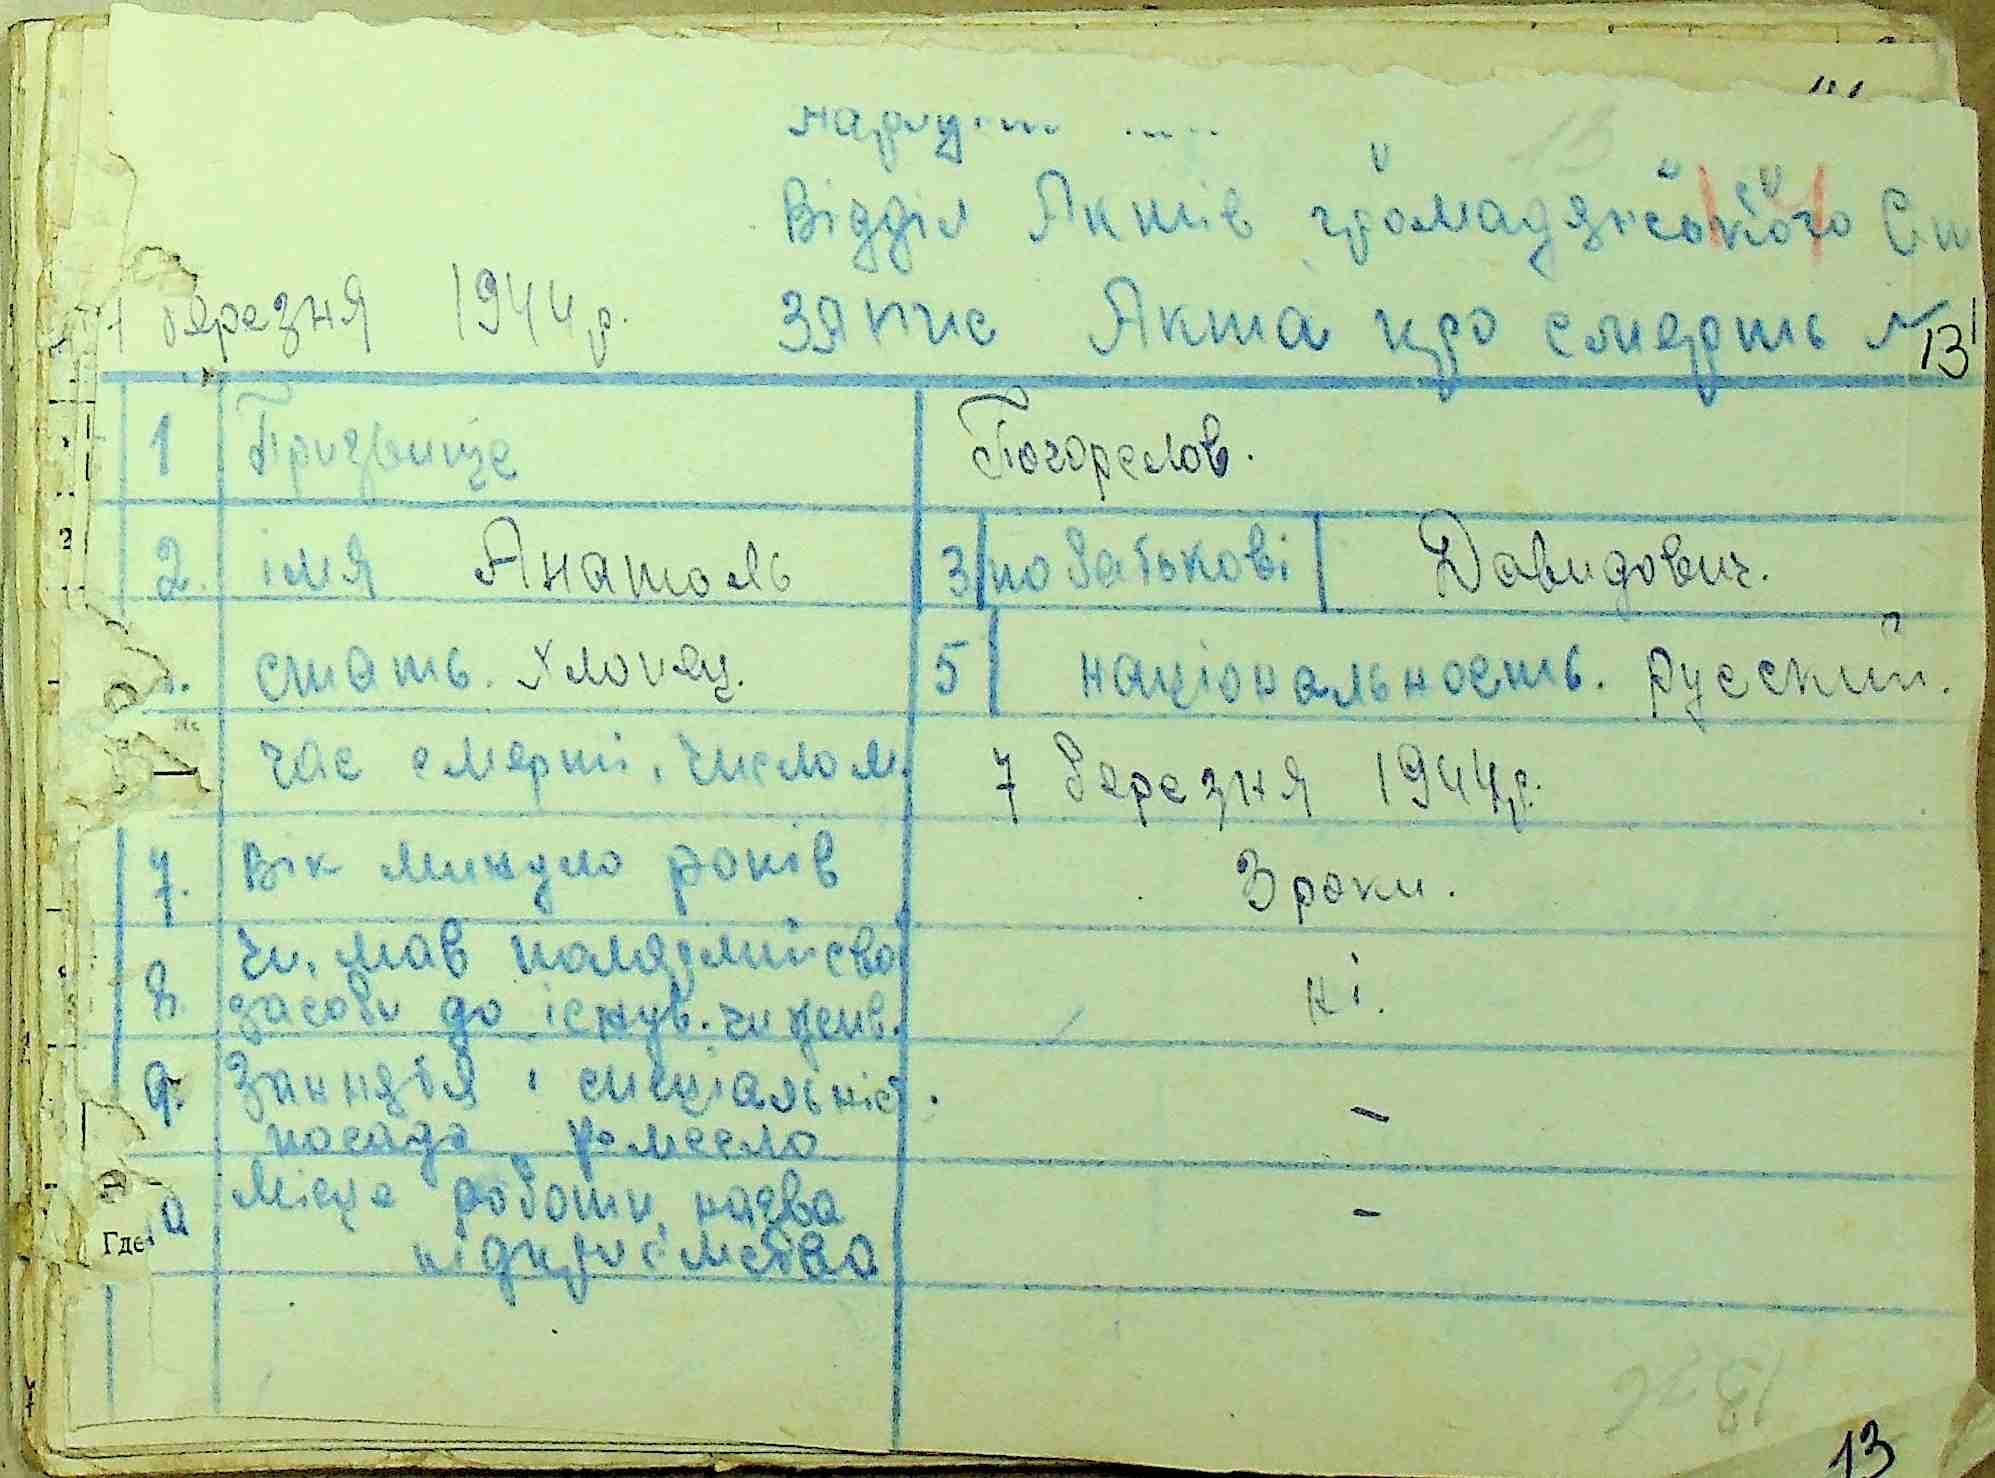 13
Відділ Актів громадянського
березня 1944 р. Запис Акта про смерть № 13
1 Призвище Погорелов.
2. імя Анатоль 3 по батькові Давидович.
стать. хлопец. 5 національность. русский.
час смерти, числом. 7 березня 1944 р.
7. Вік минуло років 3 роки.
8. Чи, мав
засоби до існув. чи ні.
9. і спеціальніст. -
посада ремесло
Місце роботи, назва -
підприємства
Где
13